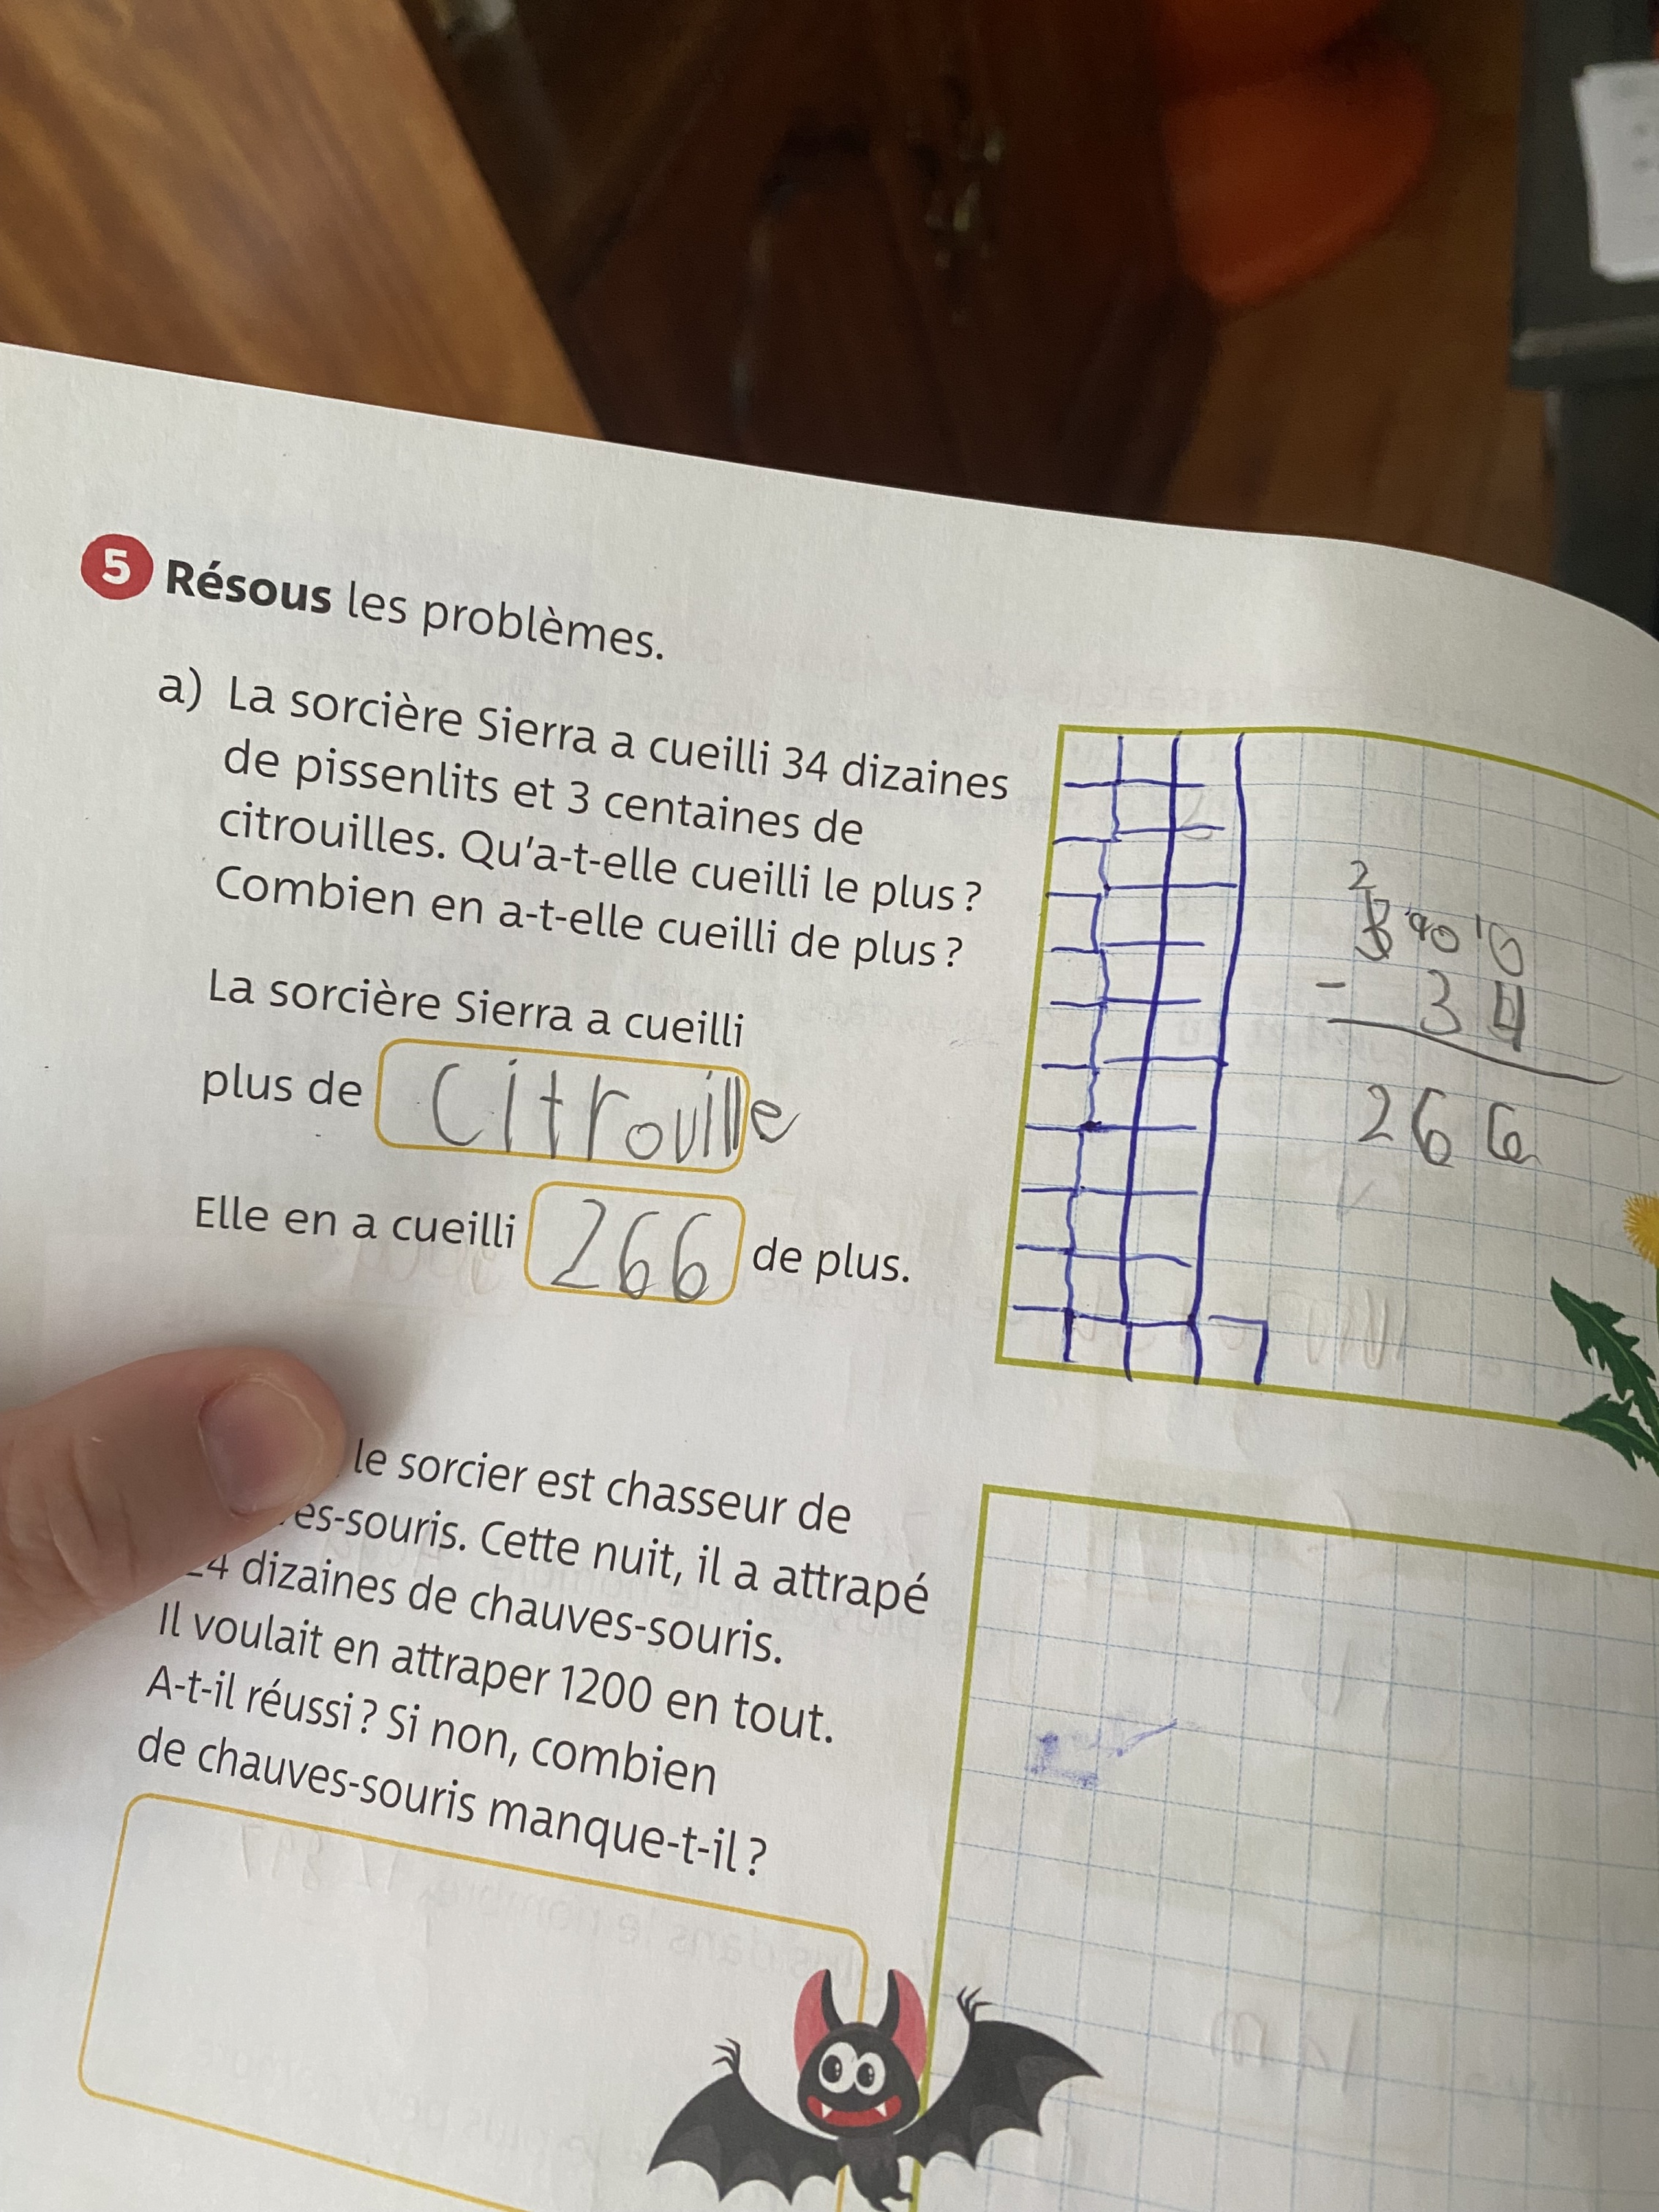 5 Résous les problèmes.
a) La sorcière Sierra a cueilli 34 dizaines
de pissenlits et 3 centaines de
citrouilles. Qu'a-t-elle cueilli le plus ?
Combien en a-t-elle cueilli de plus ?
La sorcière Sierra a cueilli
plus de Citrouille
Elle en a cueilli 266 de plus.
2
3 90 10
- 34
266
le sorcier est chasseur de
es-souris. Cette nuit, il a attrapé
4 dizaines de chauves-souris.
Il voulait en attraper 1200 en tout.
A-t-il réussi ? Si non, combien
de chauves-souris manque-t-il ?